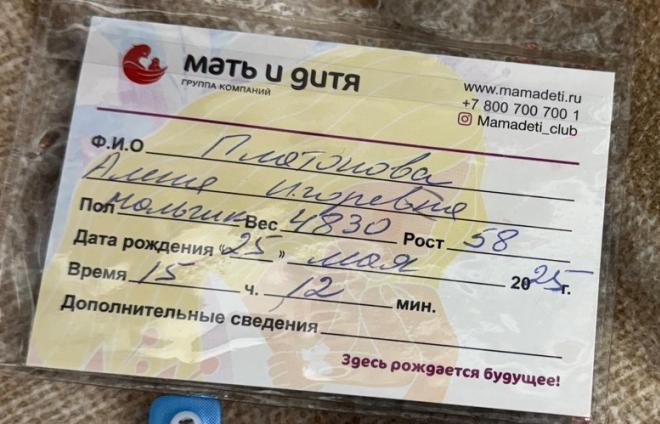 мать и дитя
ГРУППА КОМПАНИЙ
www.mamadeti.ru
+7 800 700 700 1
Mamadeti_club
Ф.И.О Платонова
Алена Игоревна
Пол мальчик Вес 4830 Рост 58
Дата рождения «25» мая 2025 г.
Время 15 ч. 12 мин.
Дополнительные сведения
Здесь рождается будущее!